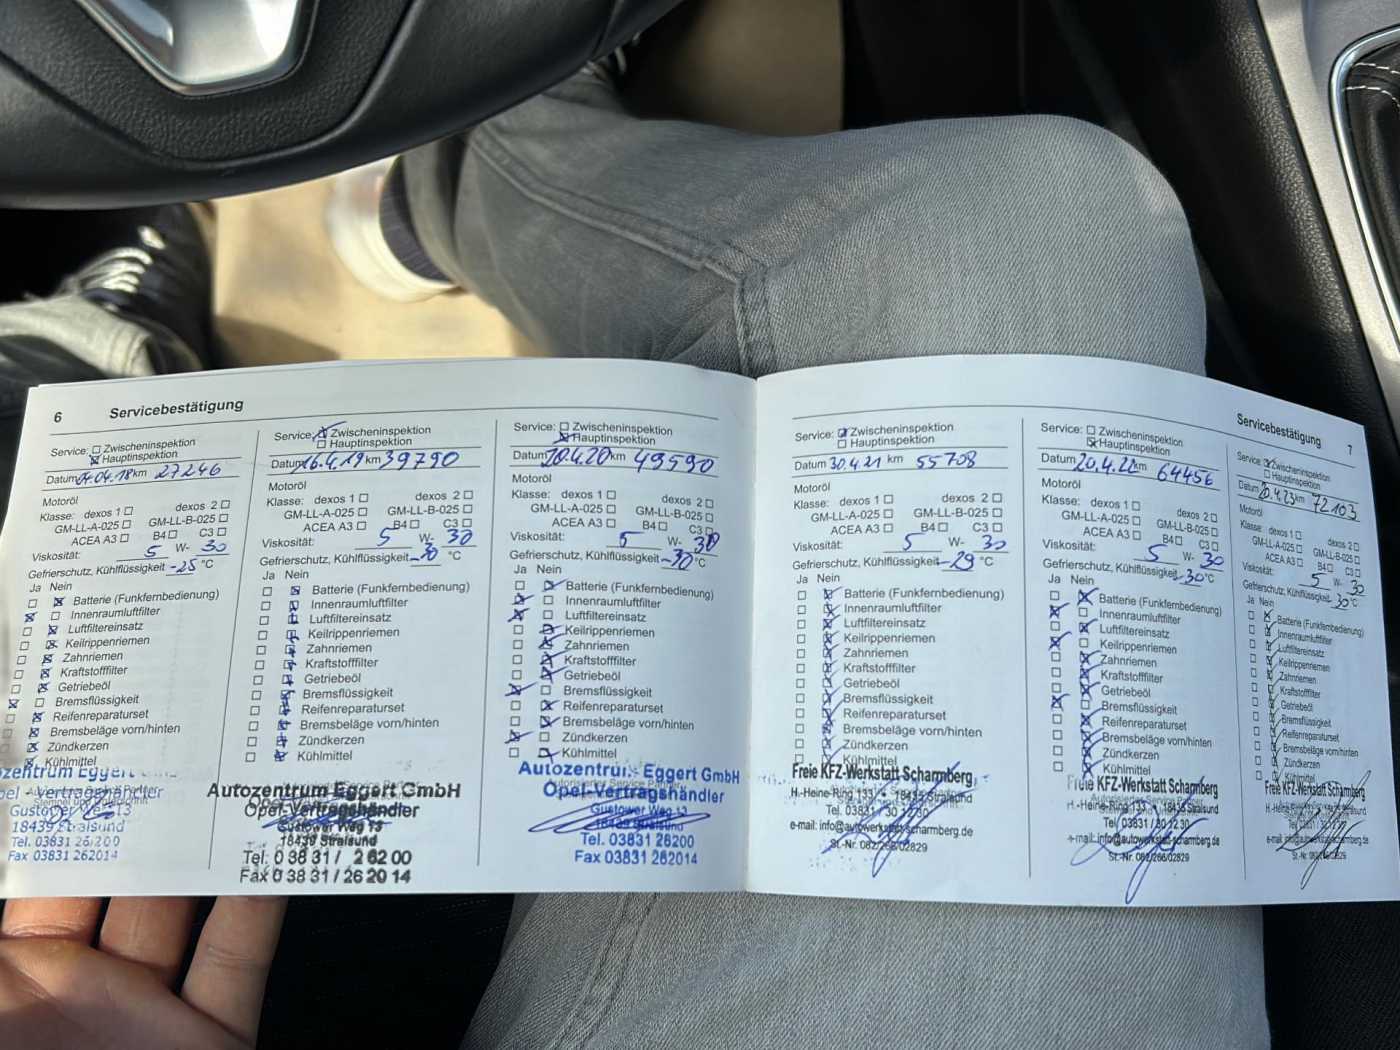 6 Servicebestätigung
Service: Zwischeninspektion
Hauptinspektion
Datum 04.04.18 km 27246
Motoröl
Klasse: dexos 1 dexos 2
GM-LL-A-025 GM-LL-B-025
ACEA A3 B4 C3
Viskosität: 5 W- 30
Gefrierschutz, Kühlflüssigkeit -25 °C
Ja Nein
Batterie (Funkfernbedienung)
Innenraumluftfilter
Luftfiltereinsatz
Keilrippenriemen
Zahnriemen
Kraftstofffilter
Getriebeöl
Bremsflüssigkeit
Reifenreparaturset
Bremsbeläge vorn/hinten
Zündkerzen
Kühlmittel
Eggert
Vertragshändler
Gustower Weg 13
18439 Stralsund
Tel. 03831 26200
Fax 03831 262014
Service: Zwischeninspektion
Hauptinspektion
Datum 16.4.19 km 39790
Motoröl
Klasse: dexos 1 dexos 2
GM-LL-A-025 GM-LL-B-025
ACEA A3 B4 C3
Viskosität: 5 W- 30
Gefrierschutz, Kühlflüssigkeit -30 °C
Ja Nein
Batterie (Funkfernbedienung)
Innenraumluftfilter
Luftfiltereinsatz
Keilrippenriemen
Zahnriemen
Kraftstofffilter
Getriebeöl
Bremsflüssigkeit
Reifenreparaturset
Bremsbeläge vorn/hinten
Zündkerzen
Kühlmittel
Autozentrum Eggert GmbH
Opel-Vertragshändler
Gustower Weg 13
18439 Stralsund
Tel: 0 38 31 / 2 62 00
Fax 0 38 31 / 26 20 14
Service: Zwischeninspektion
Hauptinspektion
Datum 20.4.20 km 49590
Motoröl
Klasse: dexos 1 dexos 2
GM-LL-A-025 GM-LL-B-025
ACEA A3 B4 C3
Viskosität: 5 W- 30
Gefrierschutz, Kühlflüssigkeit -30 °C
Ja Nein
Batterie (Funkfernbedienung)
Innenraumluftfilter
Luftfiltereinsatz
Keilrippenriemen
Zahnriemen
Kraftstofffilter
Getriebeöl
Bremsflüssigkeit
Reifenreparaturset
Bremsbeläge vorn/hinten
Zündkerzen
Kühlmittel
Autozentrum Eggert GmbH
Opel-Vertragshändler
Gustower Weg 13
18439 Stralsund
Tel. 03831 26200
Fax 03831 262014
Servicebestätigung 7
Service: Zwischeninspektion
Hauptinspektion
Datum 30.4.21 km 55708
Motoröl
Klasse: dexos 1 dexos 2
GM-LL-A-025 GM-LL-B-025
ACEA A3 B4 C3
Viskosität: 5 W- 30
Gefrierschutz, Kühlflüssigkeit -29 °C
Ja Nein
Batterie (Funkfernbedienung)
Innenraumluftfilter
Luftfiltereinsatz
Keilrippenriemen
Zahnriemen
Kraftstofffilter
Getriebeöl
Bremsflüssigkeit
Reifenreparaturset
Bremsbeläge vorn/hinten
Zündkerzen
Kühlmittel
Freie KFZ-Werkstatt Scharmberg
H.-Heine-Ring 133 · 18435 Stralsund
Tel. 03831 / 30 12 30
e-mail: info@autowerkstatt-scharmberg.de
St.-Nr. 082/266/02829
Service: Zwischeninspektion
Hauptinspektion
Datum 20.4.22 km 64456
Motoröl
Klasse: dexos 1 dexos 2
GM-LL-A-025 GM-LL-B-025
ACEA A3 B4 C3
Viskosität: 5 W- 30
Gefrierschutz, Kühlflüssigkeit -30 °C
Ja Nein
Batterie (Funkfernbedienung)
Innenraumluftfilter
Luftfiltereinsatz
Keilrippenriemen
Zahnriemen
Kraftstofffilter
Getriebeöl
Bremsflüssigkeit
Reifenreparaturset
Bremsbeläge vorn/hinten
Zündkerzen
Kühlmittel
Freie KFZ-Werkstatt Scharmberg
H.-Heine-Ring 133 · 18435 Stralsund
Tel. 03831 / 30 12 30
e-mail: info@autowerkstatt-scharmberg.de
St.-Nr. 082/266/02829
Service: Zwischeninspektion
Hauptinspektion
Datum 20.4.23 km 72103
Motoröl
Klasse: dexos 1 dexos 2
GM-LL-A-025 GM-LL-B-025
ACEA A3 B4 C3
Viskosität: 5 W- 30
Gefrierschutz, Kühlflüssigkeit -30 °C
Ja Nein
Batterie (Funkfernbedienung)
Innenraumluftfilter
Luftfiltereinsatz
Keilrippenriemen
Zahnriemen
Kraftstofffilter
Getriebeöl
Bremsflüssigkeit
Reifenreparaturset
Bremsbeläge vorn/hinten
Zündkerzen
Kühlmittel
Freie KFZ-Werkstatt Scharmberg
H.-Heine-Ring 133 · 18435 Stralsund
Tel. 03831
e-mail: info@autowerkstatt-scharmberg.de
St.-Nr. 082/266/02829